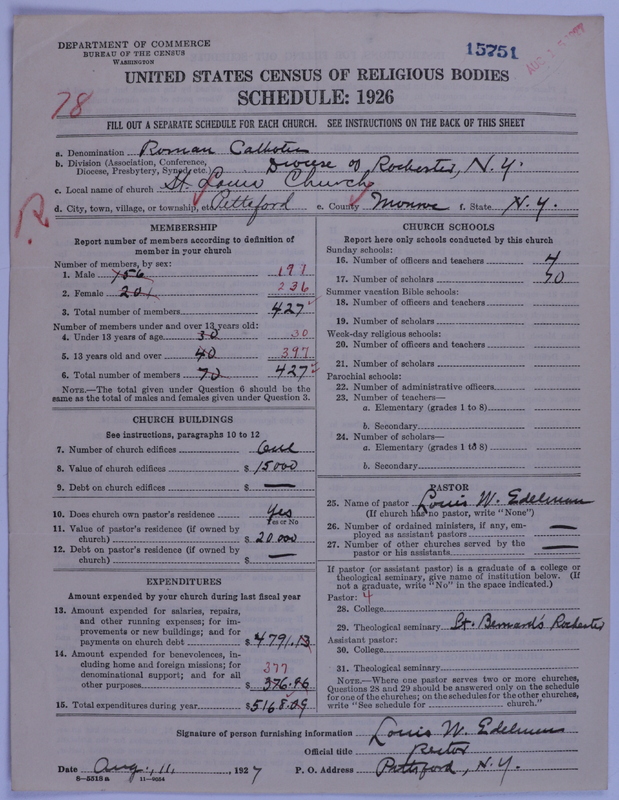 DEPARTMENT OF COMMERCE
BUREAU OF THE CENSUS
WASHINGTON
15751
UNITED STATES CENSUS OF RELIGIOUS BODIES
SCHEDULE: 1926
78
FILL OUT A SEPARATE SCHEDULE FOR EACH CHURCH. SEE INSTRUCTIONS ON THE BACK OF THIS SHEET
a. Denomination Roman Catholic
b. Division (Association, Conference, Diocese, Presbytery, Synod, etc.) Diocese of Rochester, N.Y.
c. Local name of church St. Louis Church
d. City, town, village, or township, etc. Pittsford e. County Monroe f. State N.Y.
MEMBERSHIP
Report number of members according to definition of
member in your church
Number of members, by sex:
1. Male 156 191
2. Female 201 236
3. Total number of members 427
Number of members under and over 13 years old:
4. Under 13 years of age 30 30
5. 13 years old and over 40 397
6. Total number of members 70 427
NOTE.—The total given under Question 6 should be
same as the total of males and females given under Question 3.
CHURCH BUILDINGS
See instructions, paragraphs 10 to 12
7. Number of church edifices One
8. Value of church edifices $ 15000
9. Debt on church edifices $ —
10. Does church own pastor's residence? Yes
Yes or No
11. Value of pastor's residence (if owned by
church) $ 20.000
12. Debt on pastor's residence (if owned by
church) $ —
EXPENDITURES
Amount expended by your church during last fiscal year
13. Amount expended for salaries, repairs,
and other running expenses; for im-
provements or new buildings; and for
payments on church debt $ 4791.13
14. Amount expended for benevolences, in-
cluding home and foreign missions; for
denominational support; and for all
377
other purposes $ 376.96
15. Total expenditures during year $ 5168.09
CHURCH SCHOOLS
Report here only schools conducted by this church
Sunday schools:
16. Number of officers and teachers 4
17. Number of scholars 70
Summer vacation Bible schools:
18. Number of officers and teachers
19. Number of scholars
Week-day religious schools:
20. Number of officers and teachers
21. Number of scholars
Parochial schools:
22. Number of administrative officers
23. Number of teachers—
a. Elementary (grades 1 to 8)
b. Secondary
24. Number of scholars—
a. Elementary (grades 1 to 8)
b. Secondary
PASTOR
25. Name of pastor Louis W. Edelman
(If church has no pastor, write "None")
26. Number of ordained ministers, if any, em-
ployed as assistant pastors —
27. Number of other churches served by the
pastor or his assistants —
If pastor (or assistant pastor) is a graduate of a college or
theological seminary, give name of institution below. (If
not a graduate, write "No" in the space indicated.)
Pastor: 4
28. College
29. Theological seminary St. Bernard's Rochester
Assistant pastor:
30. College
31. Theological seminary
NOTE.—Where one pastor serves two or more churches,
Questions 28 and 29 should be answered only on the schedule
for one of the churches; on the schedules for the other churches,
write "See schedule for church."
Signature of person furnishing information Louis W. Edelman
Official title Rector
Date Aug. 11, 1927 P. O. Address Pittsford, N.Y.
8-5518a 11-9054